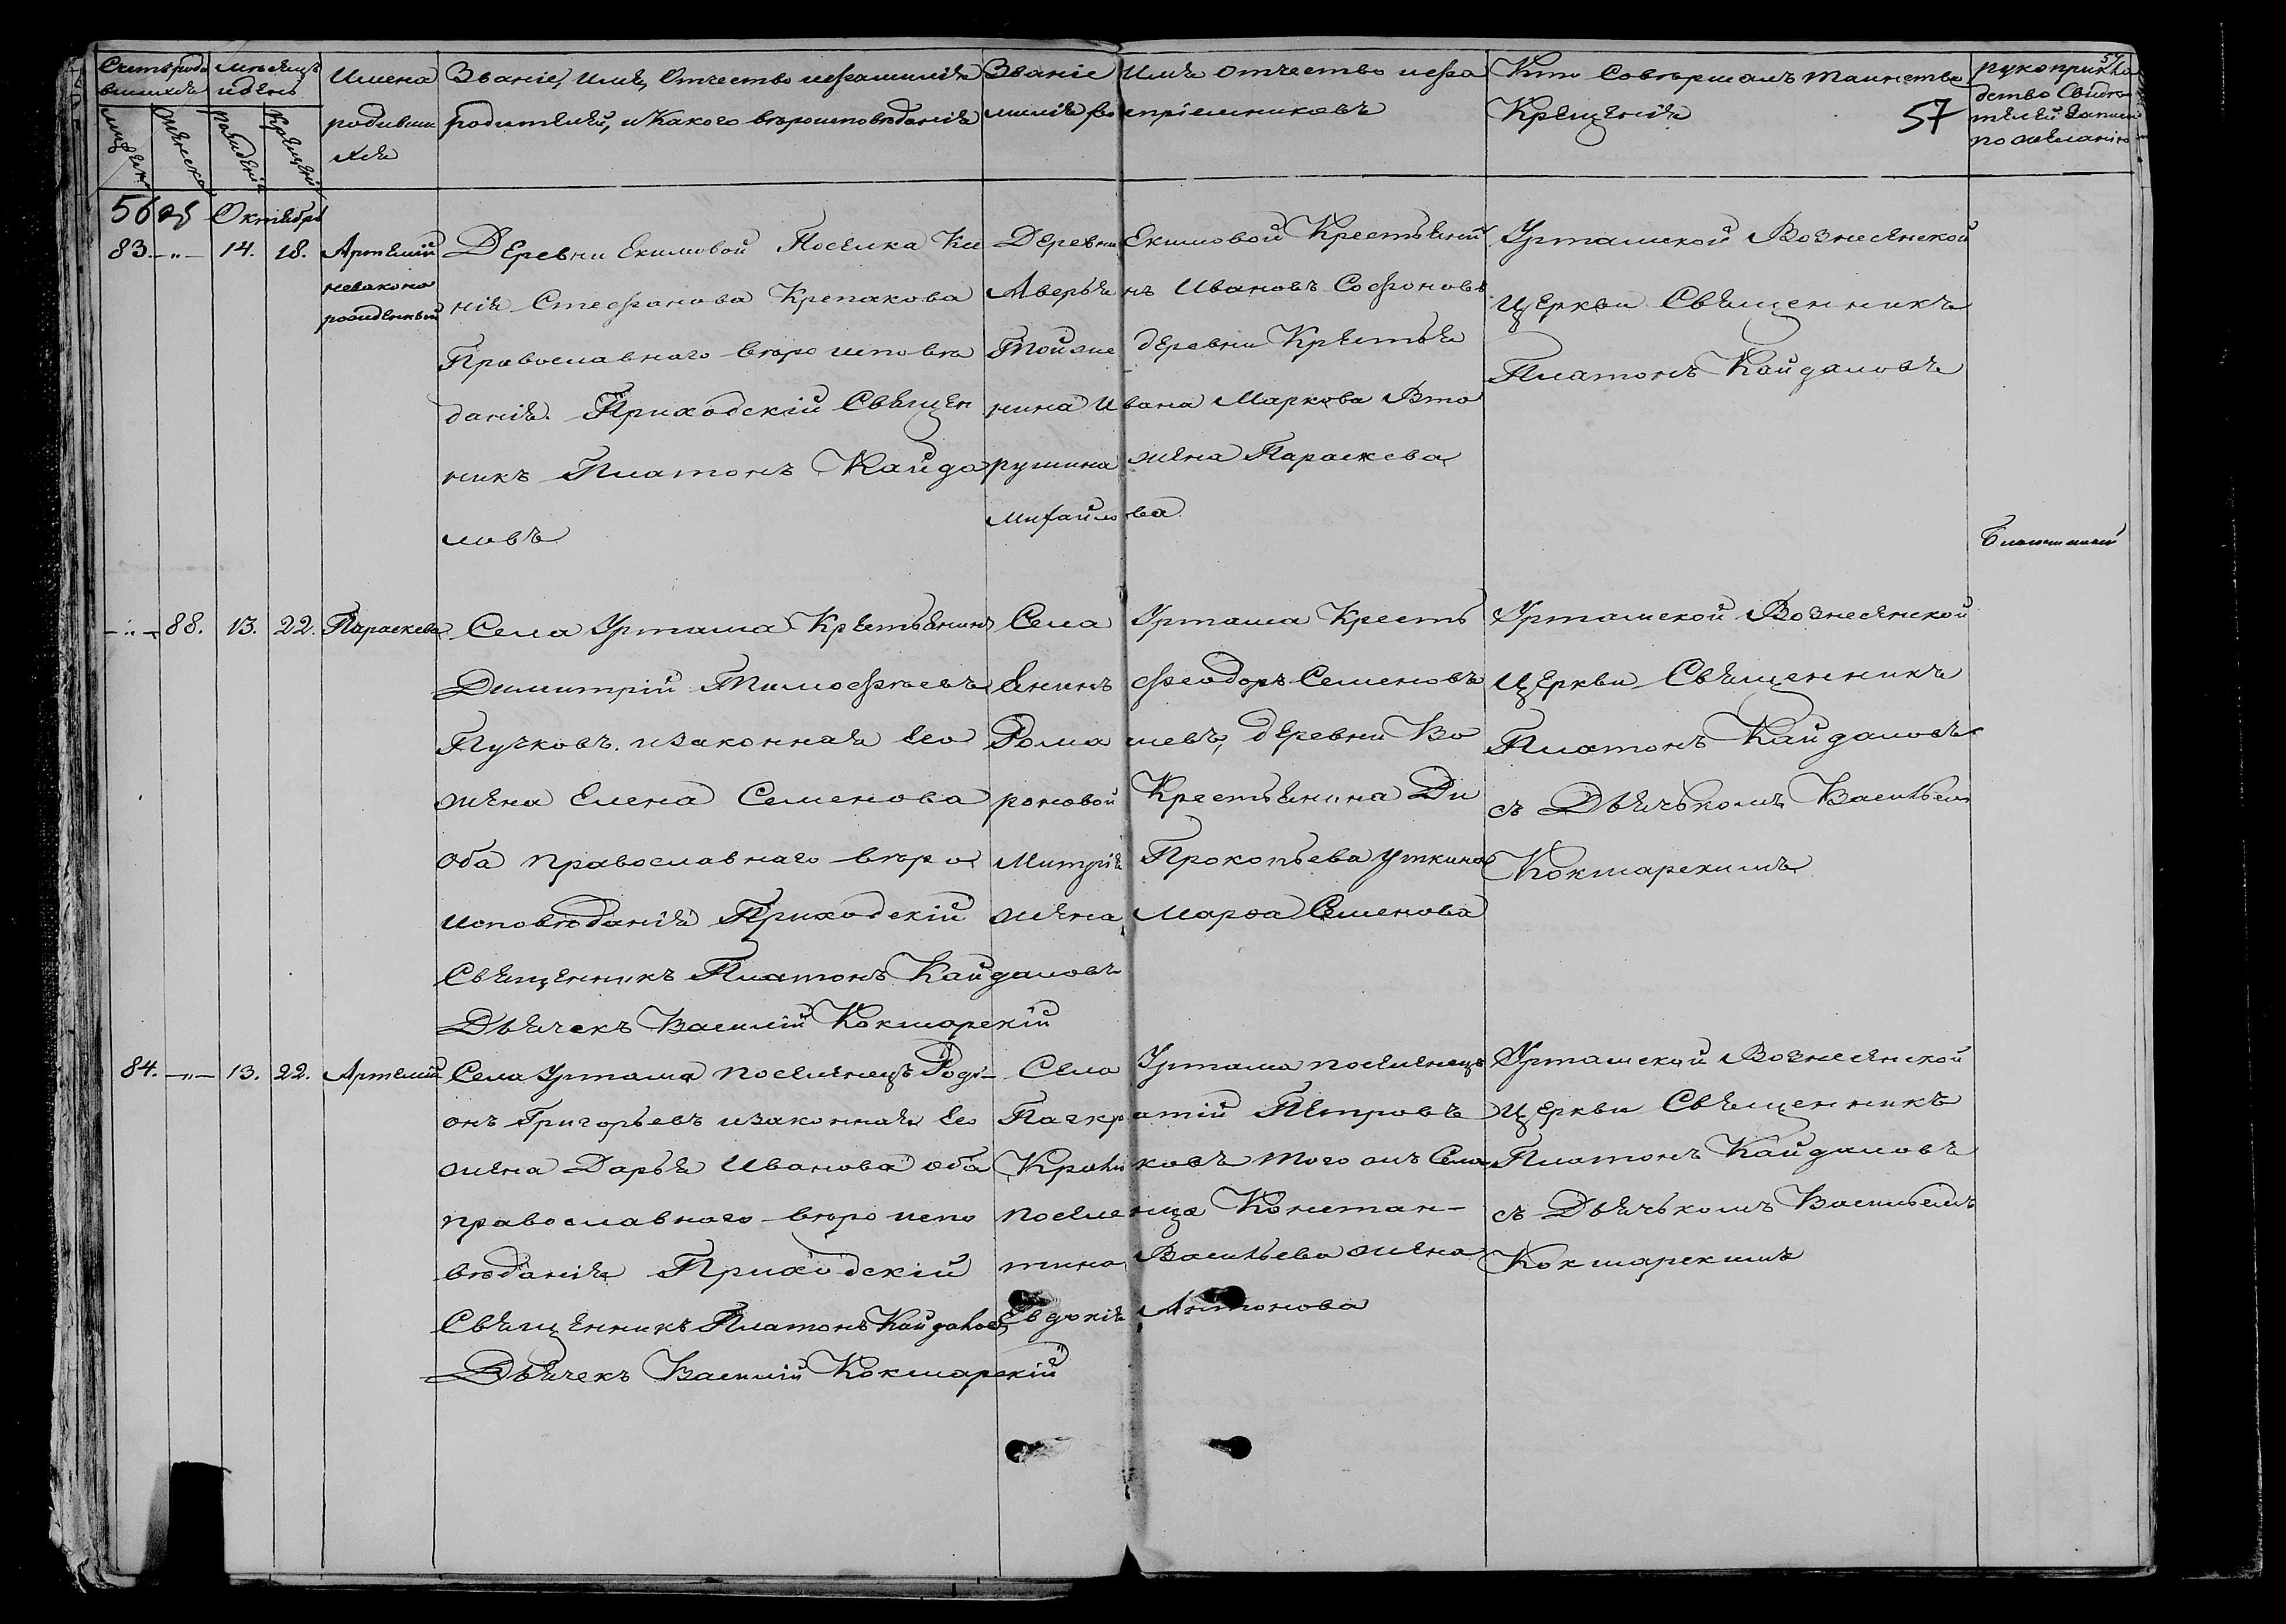 Счетъ роди
вшихся
Мѣсяцъ
и день
Имена
родивши
хся
Званіе, имя, Отчество и фамилія
родителей, и Какого вѣроисповѣданія
Званіе Имя отчество и фа
милія воспріемниковъ
Кто Совершалъ таинство
Крещенія
57
57
рукоприкла
дство Свидѣ
телей записи
по желанію
мужеск.
женска
рожденія
крещені
56 об Октября
83. -„- 14. 18. Артемій
незаконо
рожденный
Деревни Екимовой Поселка Кс
нія Стефанова Крепакова
Православнаго вѣроисповѣ
данія. Приходскій Священ
никъ Платонъ Кайда
ловъ
Деревни Екимовой Крестьяни
Аверья нъ Ивановъ Софоновъ
Той же деревни Крестья
нина Ивана Маркова Вто
рушина жена Параскева
Михайлова
Уртамской Вознесенской
Церкви Священникъ
Платонъ Кайдаловъ
-„- 88. 13. 22. Параскева
Села Уртама Крестьянинъ
Димитрій Тимофѣевъ
Пучковъ. и законная его
жена Елена Семенова
оба православнаго вѣро
исповѣданія Приходскій
Священникъ Платонъ Кайдаловъ
Дьячекъ Василій Кокшарскій
Села Уртама Кресть
янинъ Феодоръ Семеновъ
Рома шевъ, деревни Во
роновой Крестьянина Ди
митрія Прокопьева Уткина
жена Марѳа Семенова
Уртамской Вознесенской
Церкви Священникъ
Платонъ Кайдаловъ
съ Дьячькомъ Васильем
Кокшарскимъ
84. -„- 13. 22. Артемій
Села Уртама поселенецъ Роді-
онъ Григорьевъ и законная его
жена Дарья Иванова оба
православнаго вѣроиспо
вѣданія Приходскій
Священникъ Платонъ Кайдалов
Дьячекъ Василій Кокшарскій
Села Уртама поселенецъ
Панкратій Петровъ
ковъ того жъ Села
поселенца Констан-
тина Васильева жена
Евдокія Антонова
Уртамской Вознесенской
Церкви Священникъ
Платонъ Кайдаловъ
съ Дьячькомъ Васильемъ
Кокшарскимъ